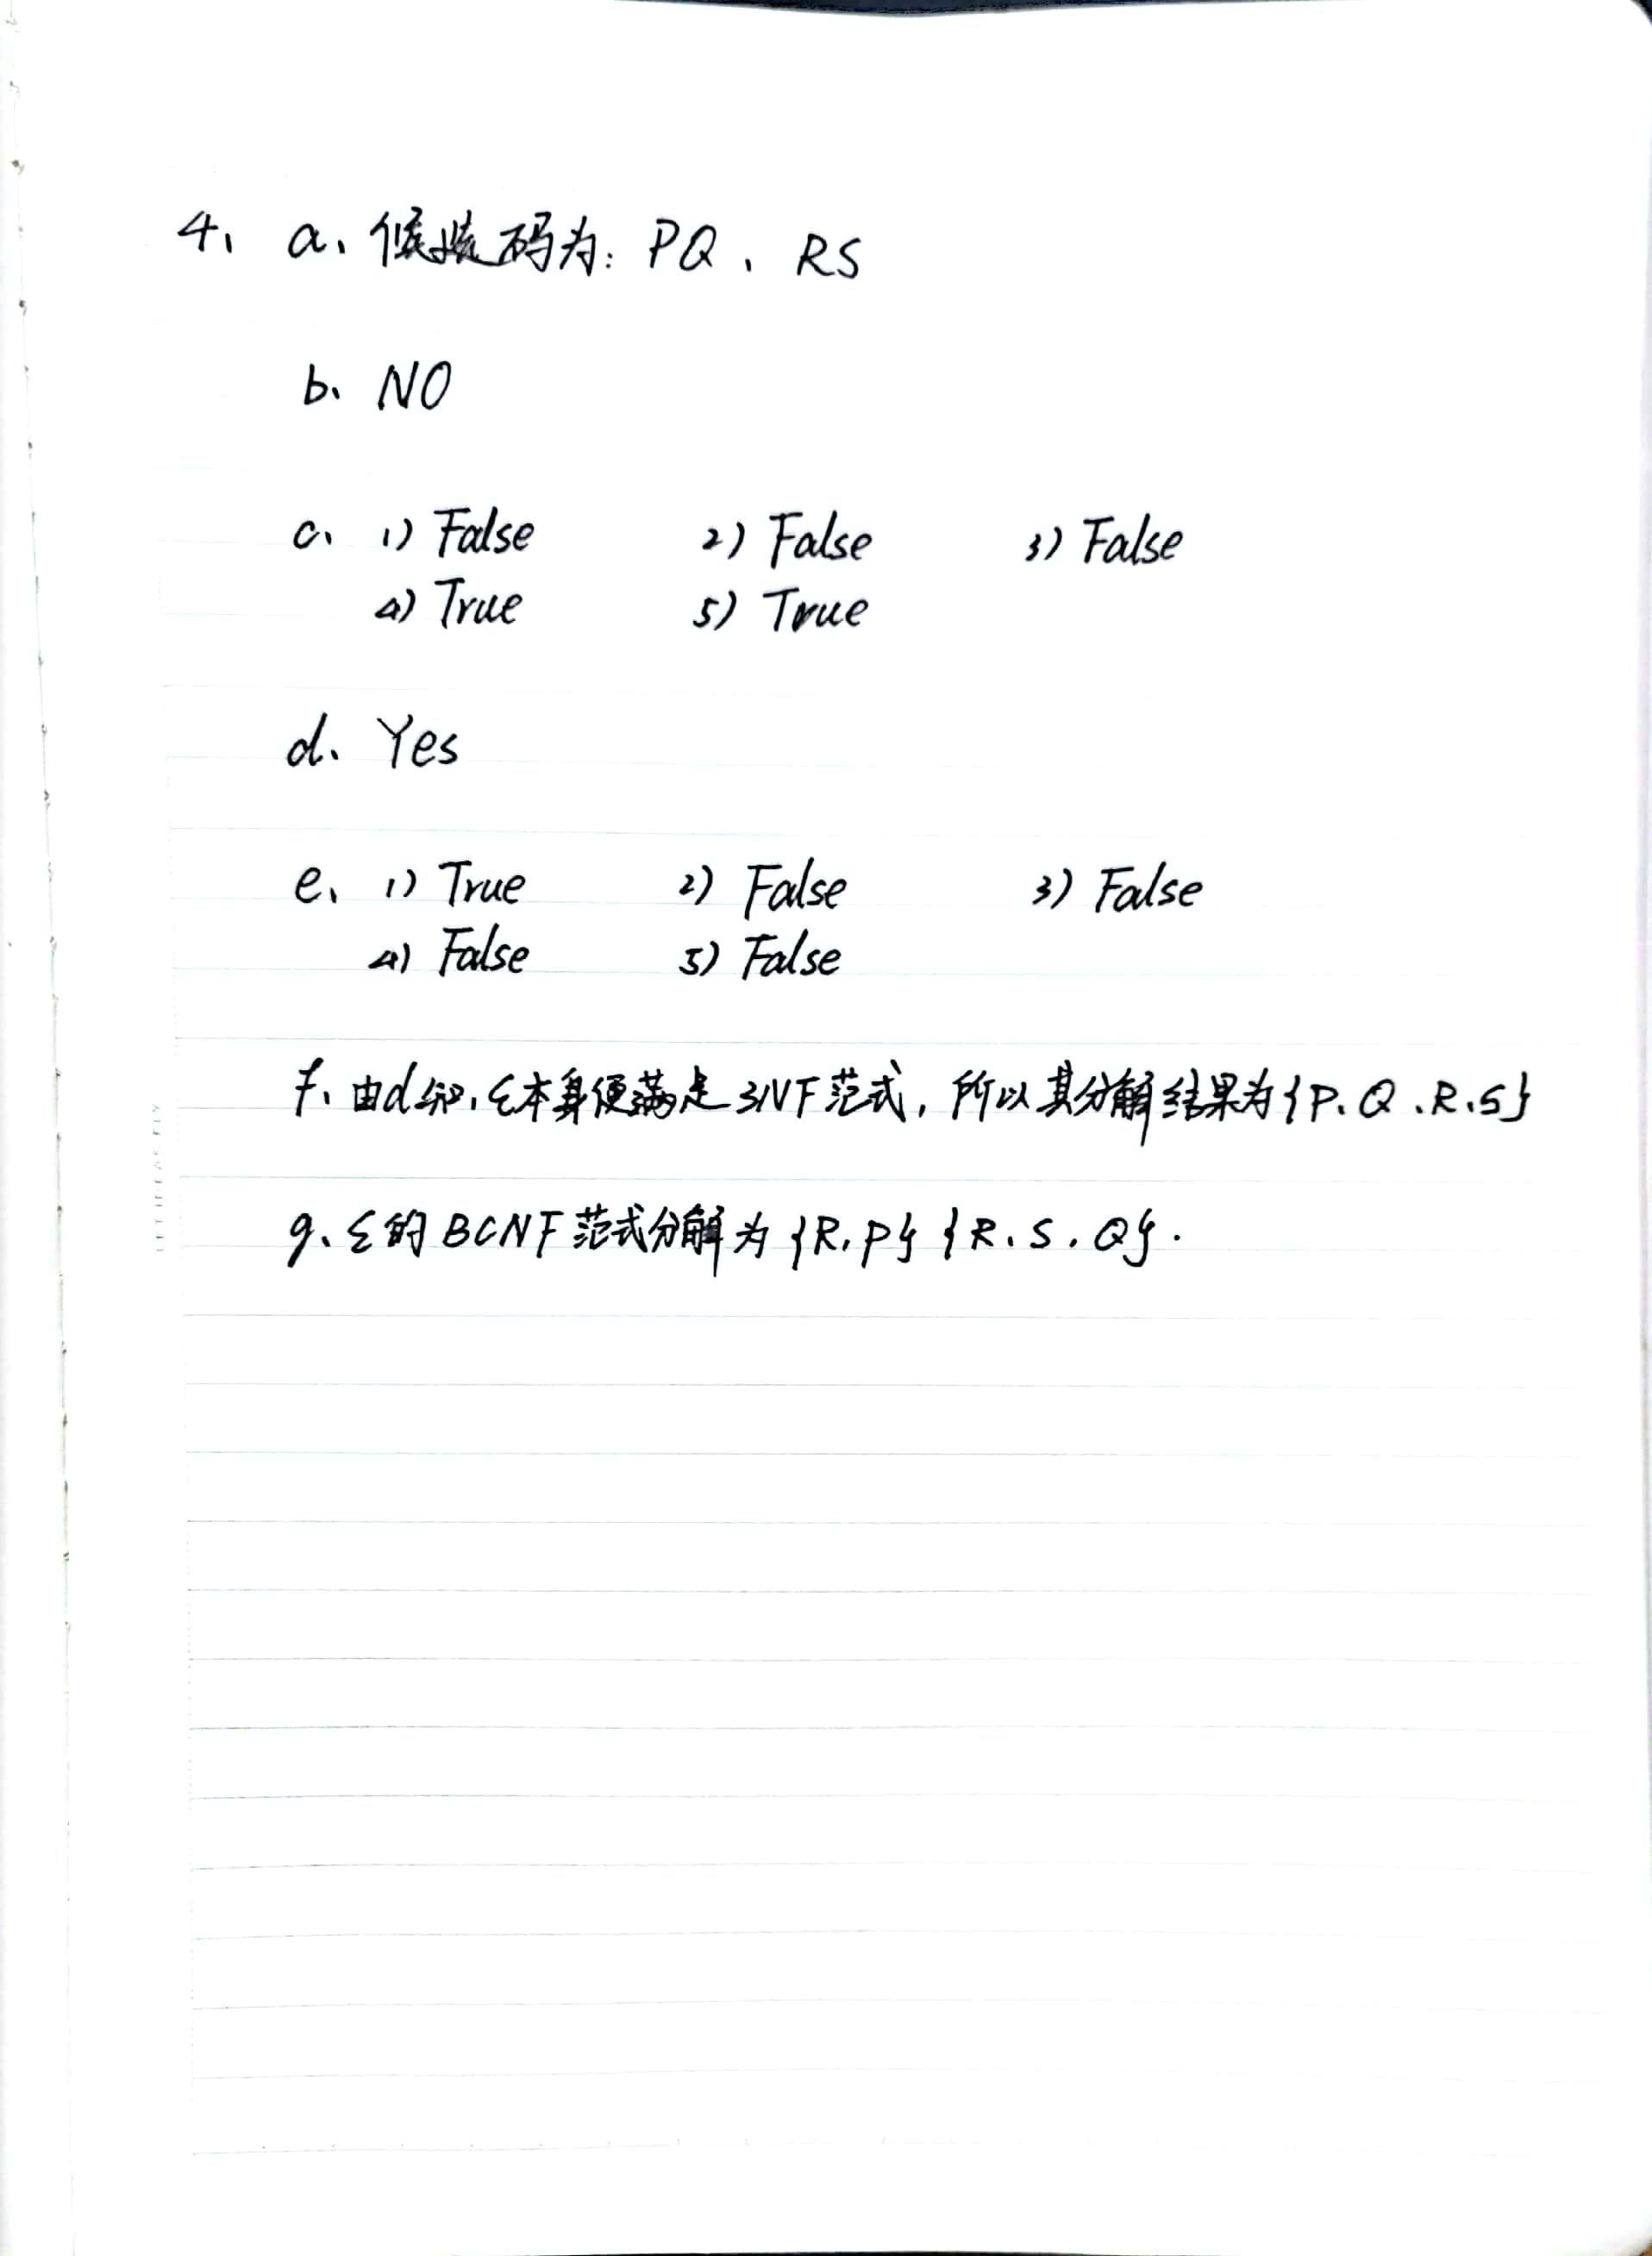 4、 a、候选码为: PQ、RS
b、NO
c、 1) False 2) False 3) False
4) True 5) True
d、Yes
e、 1) True 2) False 3) False
4) False 5) False
f、由d知,Σ本身便满足3NF范式, 所以其分解结果为{P、Q、R、S}
g、Σ的BCNF范式分解为{R,P} {R、S、Q}.